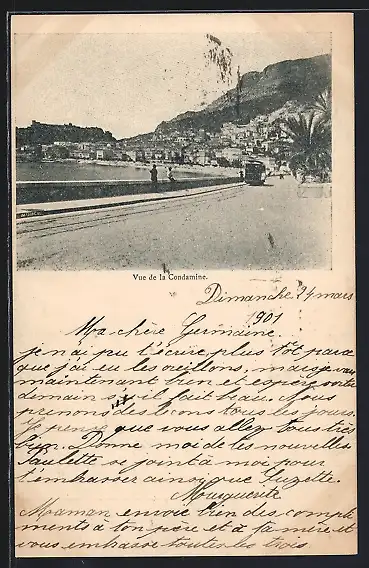 Vue de la Condamine.
Dimanche 24 mars
1901
Ma chère Germaine.
je n'ai pu t'écrire plus tôt parce
que j'ai eu les oreillons, mais je vais
maintenant bien et espère sortir
demain s'il fait beau. Nous
prenons des leçons tous les jours.
Je pense que vous allez tous très
bien. Donne moi de tes nouvelles
Paulette se joint à moi pour
t'embrasser ainsi que Suzette.
Marguerite
Maman envoie bien des compli
ments à ton père et à ta mère et
vous embrasse toutes les trois.